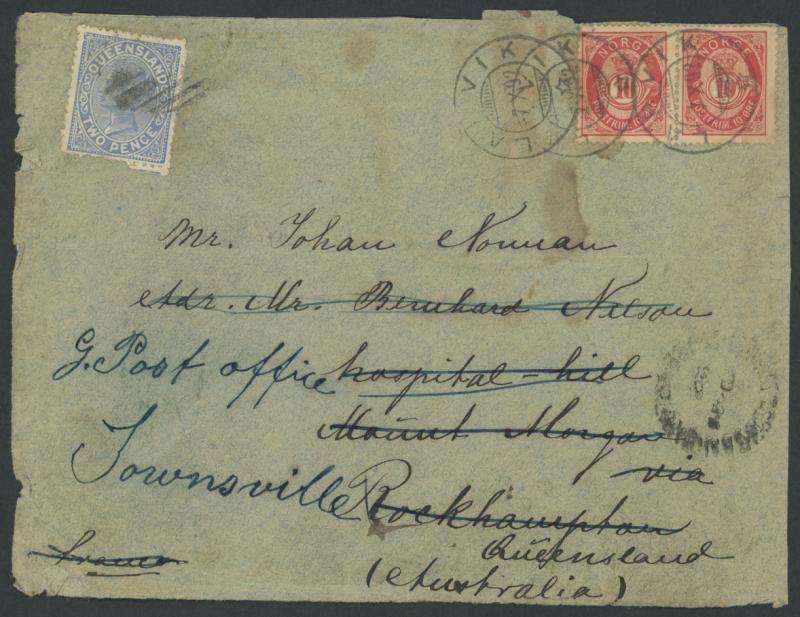 QUEENSLAND
TWO PENCE
NORGE
10
POSTFRIM. 10 ØRE
NORGE
10
POSTFRIM. 10 ØRE
Mr. Johan Norman
Adr. Mr. Bernhard Nelson
G. Post office hospital-hill
Mount Morgan
via
Townsville Rockhampton
Queensland
(Australia)
Franco